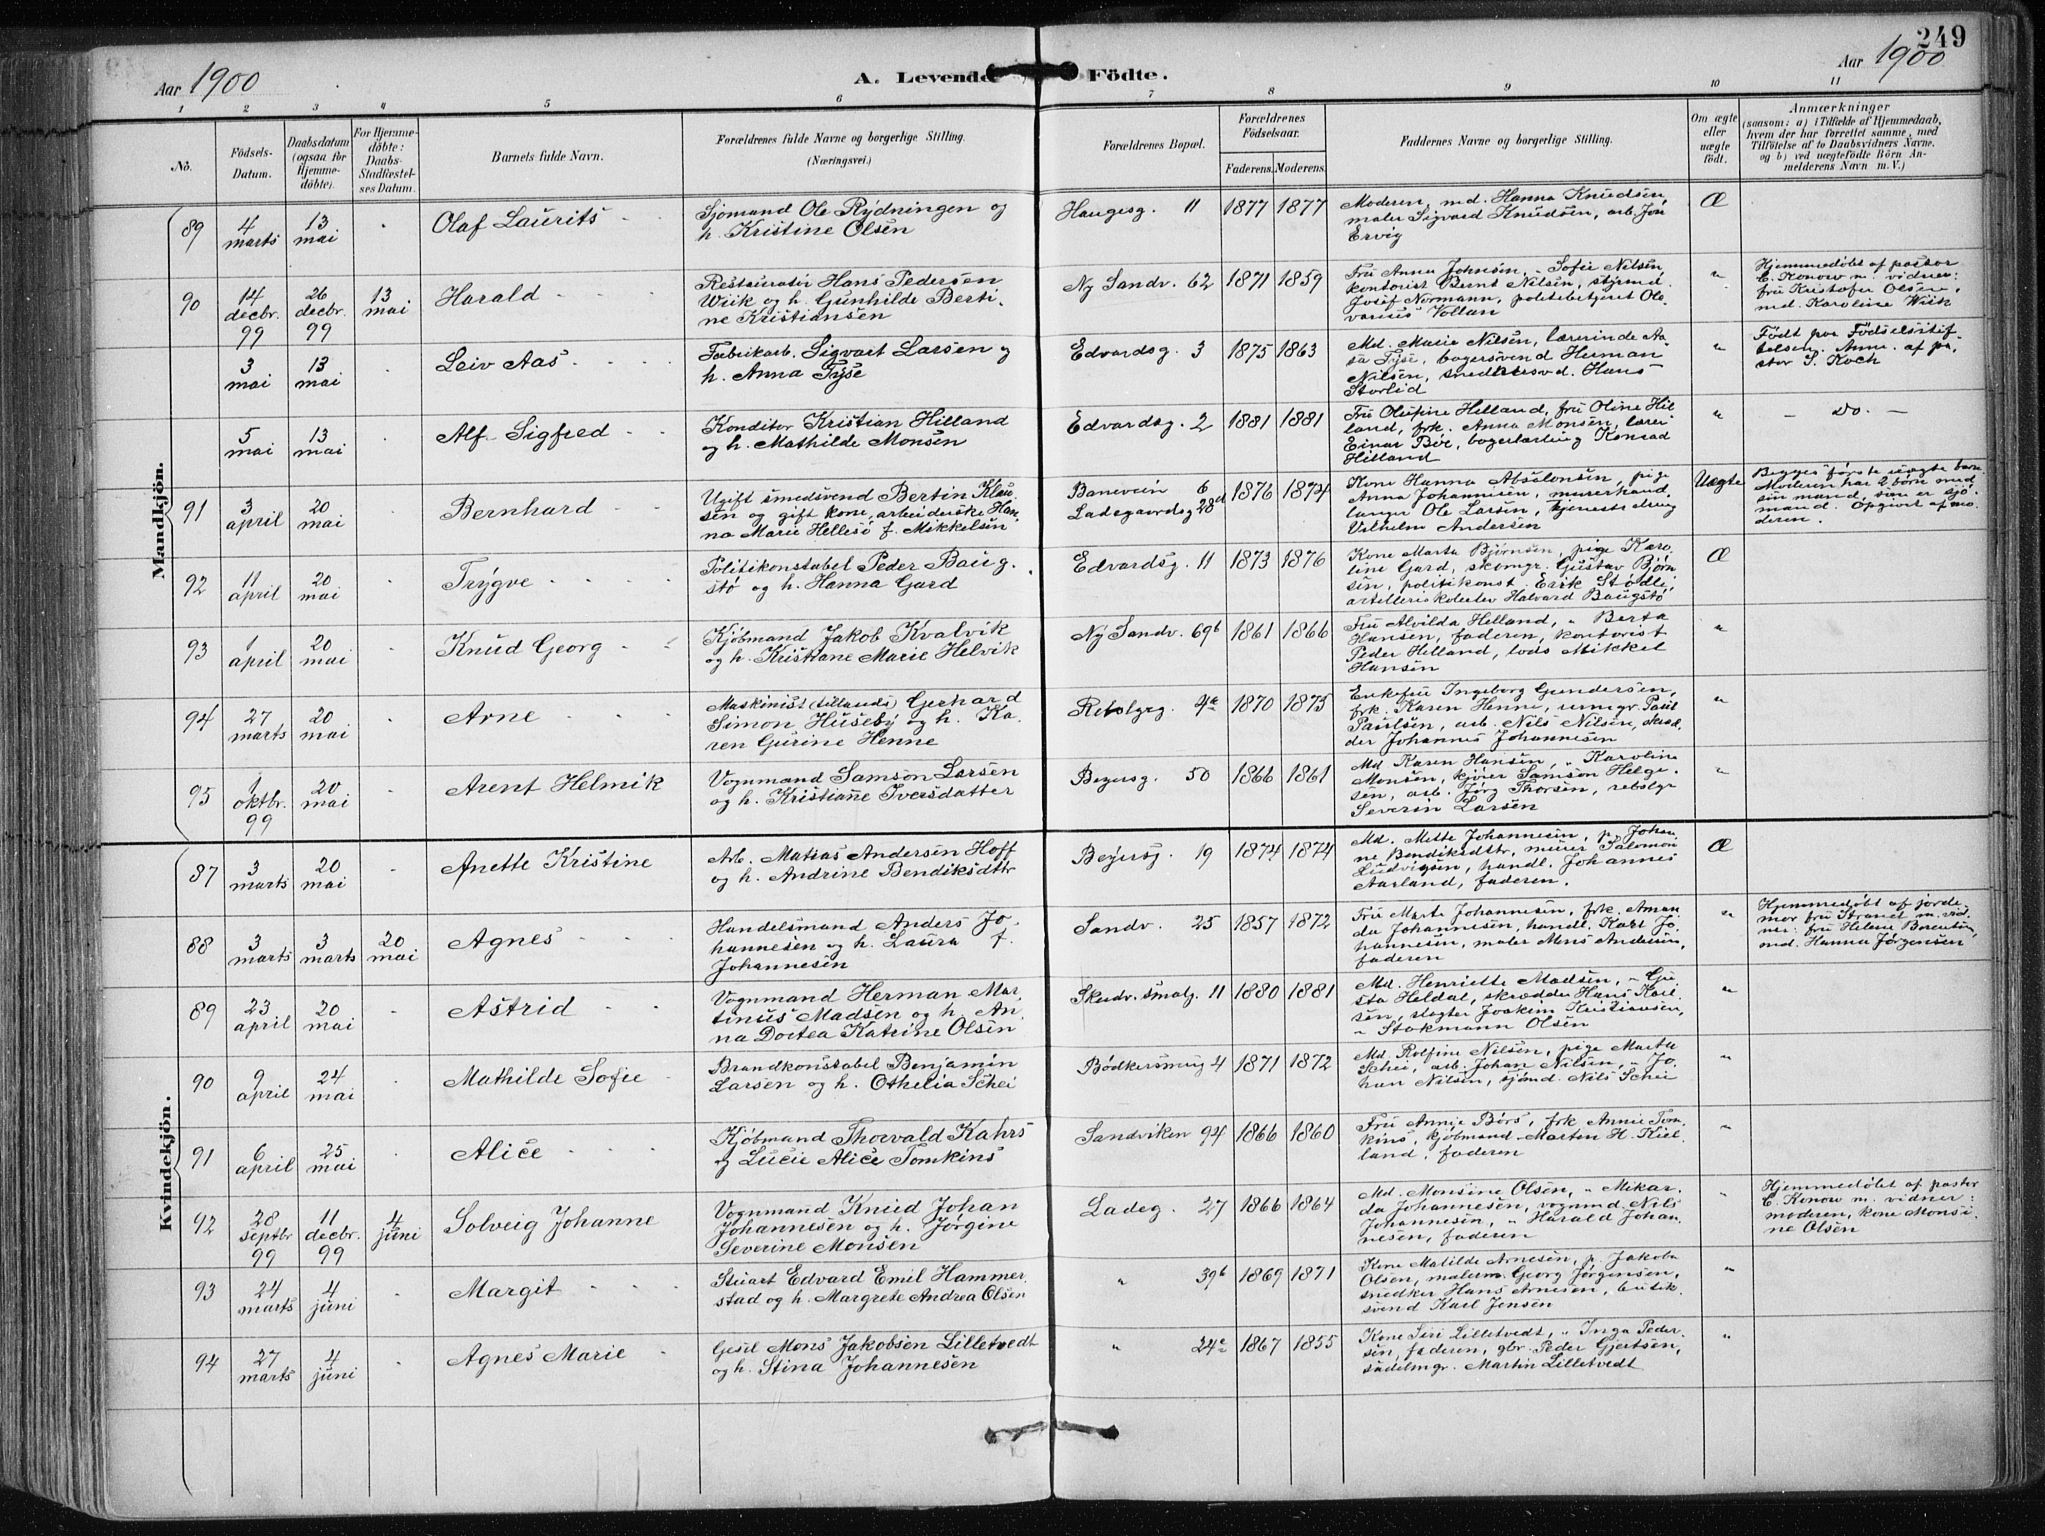 249
Aar 1900
A. Levende Födte.
Aar 1900
1 2 3 4 5 6 7 8 9 10 11
No.
Födsels-Datum.
Daabsdatum (ogsaa for Hjemmedöbte).
For Hjemmedöbte: Daabs-Stadfæstelses Datum.
Barnets fulde Navn.
Forældrenes fulde Navne og borgerlige Stilling.
(Næringsvei.)
Forældrenes Bopæl.
Forældrenes Födselsaar.
Faderens. Moderens.
Faddernes Navne og borgerlige Stilling.
Om ægte eller uægte födt.
Anmærkninger
(saasom: a) i Tilfælde af Hjemmedaab, hvem der har forrettet samme, med Tilföielse af to Daabsvidners Navne, og b) ved uægtefödte Börn Anmelderens Navn m. V.)
Mandkjön.
89 4 marts 13 mai Olaf Laurits
Sjömand Ole Rydningen og
h. Kristine Olsen
Haugesg. 11 1877 1877
Moderen, md. Hanna Knudsen,
maler Sigvard Knudsen, arb. Jon
Ervig
Æ
90 14 decbr. 99 26 decbr. 99 13 mai Harald
Restauratör Hans Pedersen
Wiik og h. Gunhilde Berti-
ne Kristiansen
Ny Sandv. 62 1871 1859
Fru Anna Johnsen, " Sofie Nilsen,
kontorist Bernt Nilsen, styrmd.
Josef Normann, politibetjent Ole-
varius Vollan
"
Hjemmedöbt af pastor
C. Konow m. vidner:
fru Kristofer Olsen,
md. Karoline Wiik
3 mai 13 mai Leiv Aas
Fabrikarb. Sigvart Larsen og
h. Anna Tyse
Edvardsg. 3 1875 1863
Md. Marie Nilsen, lærerinde Aa-
sa Tyse, bagersvend Herman
Nilsen, snedkersvd. Hans
Storlid
"
Födt paa Födselsstif-
telsen, Anm. af pa-
stor S. Koch
5 mai 13 mai Alf Sigfred
Konditor Kristian Hilland
og h. Mathilde Monsen
Edvardsg. 2 1881 1881
Fru Olufine Hilland, fru Oline Hil-
land, frk. Anna Monsen, lærer
Einar Böe, bagerlærling Konrad
Hilland
"
- do. -
91 3 april 20 mai Bernhard
Ugift smedsvend Bertin Klau-
sen og gift kone, arbeiderske Han-
na Marie Hellesö f. Mikkelsen
Baneveien 6
Ladegaardsg 28d
1876 1874
Kone Hanna Absalonsen, pige
Anna Johannesen, murerhand-
langer Ole Larsen, tjenestedreng
Vilhelm Andersen
Uægte
Begges første uægte barn.
Moderen har 2 børn med
sin mand, som er sjö-
mand. Opgivet af mo-
deren.
92 11 april 20 mai Trygve
Politikonstabel Peder Baug-
stø og h. Hanna Gard
Edvardsg. 11 1873 1876
Kone Marta Bjørnsen, pige Karo-
line Gard, skomgr. Gustav Bjørn-
sen, politikonst. Erik Stødle,
artillerikolutlev Halvard Baugstø
Æ
93 1 april 20 mai Knud Georg
Kjöbmand Jakob Kvalvik
og h. Kristiane Marie Helvik
Ny Sandv. 69b 1861 1866
Fru Alvilda Helland, " Berta
Hansen, faderen, kontorist
Peder Helland, lods Mikkel
Hansen
"
94 27 marts 20 mai Arne
Maskinist (tillands) Gerhard
Simon Huseby og h. Ka-
ren Gurine Henne
1870 1875
Enkefru Ingeborg Gundersen,
frk. Karen Henne, urmgr. Paul
Paulsen, arb. Nils Nilsen, skræd-
der Johannes Johannesen
"
95 1 oktbr. 99 20 mai Arent Helmik
Vognmand Samson Larsen
og h. Kristiane Iversdatter
Beyersg. 50 1866 1861
Md Karen Hansen, " Karoline
Monsen, kjører Samson Helge-
sen, arb. Jørg Thorsen, rebslgr
Severin Larsen
"
Kvindekjön.
87 3 marts 20 mai Anette Kristine
Arb. Matias Andersen Hoff
og h. Andrine Bendiksdttr
Beyersg. 19 1874 1874
Md. Mette Johannesen, p. Johan-
ne Bendiksdttr, murer Salomon
Ludvigsen, handl. Johannes
Aarland, faderen.
Æ
88 3 marts 3 marts 20 mai Agnes
Handelsmand Anders Jo-
hannesen og h. Laura f.
Johannesen
Sandv. 25 1857 1872
Fru Marta Johannesen, frk. Aman-
da Johannesen, handl. Karl Jo-
hannesen, maler Mons Andersen,
faderen
"
Hjemmedöbt af jorde-
mor fru Strand m. vid-
ner: fru Helene Berentsen,
md. Hanna Jørgensen
89 23 april 20 mai Astrid
Vognmand Herman Mar-
tinus Madsen og h. An-
na Dortea Katrine Olsen
Skudv. smalg. 11 1880 1881
Md. Henriette Madsen, " Gu-
sta Heldal, skrædder Hans Karl-
sen, slagter Joakim Kristiansen,
" Stokmann Olsen
"
90 9 april 24 mai Mathilde Sofie
Brandkonstabel Benjamin
Larsen og h. Othelia Schei
Bødkersmug 4 1871 1872
Md. Rolfine Nilsen, pige Marta
Schei, arb. Johan Nilsen, " Jo-
han Nilsen, sjömd. Nils Schei
"
91 6 april 25 mai Alice
Kjöbmand Thorvald Kahrs
og Lucie Alice Tomkins
Sandviken 94 1866 1860
Fru Annie Børs, frk Annie Tom-
kins, kjöbmand Marten H. Kiel-
land, faderen
"
92 28 septbr 99 11 decbr. 99 4 juni Solveig Johanne
Vognmand Knud Johan
Johannesen og h. Jørgine
Severine Monsen
Ladeg. 27 1866 1864
Md. Monsine Olsen, " Mikar-
da Johannesen, vognmd Nils
Johannesen, " Harald Johan-
nesen, faderen
"
Hjemmedöbt af pastor
C. Konow m. vidner:
moderen, kone Monsi-
ne Olsen
93 24 marts 4 juni Margit
Stuart Edvard Emil Hammer-
stad og h. Margrete Andrea Olsen
" 39b 1869 1871
Kone Matilde Arnesen, p. Jakoba
Olsen, malerm. Georg Jørgensen,
snedker Hans Arnesen, butik-
svend Karl Jensen
"
94 27 marts 4 juni Agnes Marie
Gesel Mons Jakobsen Lilletvedt
og h. Stina Johannesen
" 24c 1867 1855
Kone Siri Lilletvedt, " Inga Peder-
sen, faderen, gbr. Peder Gjertsen,
sadelmgr. Martin Lilletvedt
"